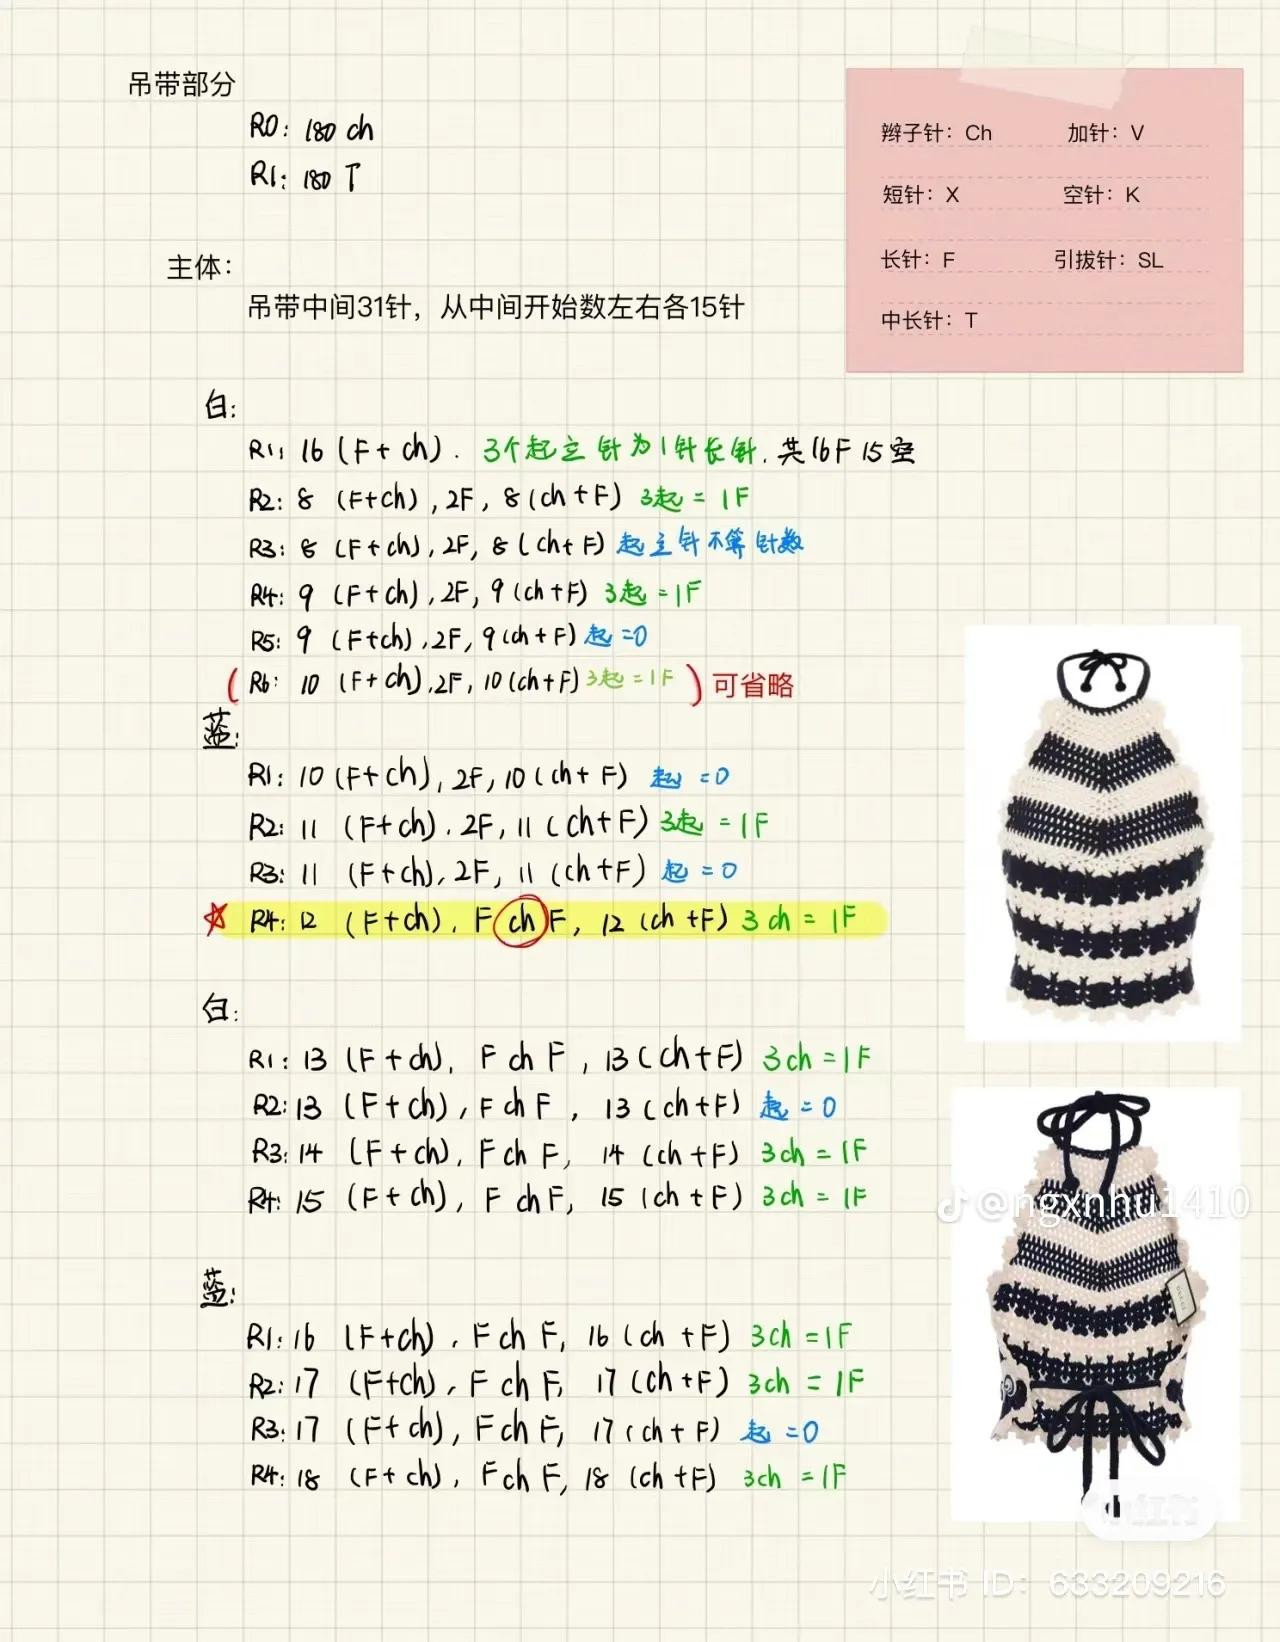 吊带部分
R0: 180 ch
R1: 180 T
辫子针：Ch 加针：V
短针：X 空针：K
长针：F 引拔针：SL
中长针：T
主体：
吊带中间31针，从中间开始数左右各15针
白:
R1: 16 (F+ch). 3个起立针为1针长针. 共16F 15空
R2: 8 (F+ch), 2F, 8(ch+F) 3起 = 1F
R3: 8 (F+ch), 2F, 8(ch+F) 起立针不算针数
R4: 9 (F+ch), 2F, 9(ch+F) 3起 = 1F
R5: 9 (F+ch), 2F, 9(ch+F) 起 =0
( R6: 10 (F+ch), 2F, 10(ch+F) 3起 = 1F ) 可省略
蓝:
R1: 10 (F+ch), 2F, 10(ch+F) 起 =0
R2: 11 (F+ch), 2F, 11(ch+F) 3起 = 1F
R3: 11 (F+ch), 2F, 11(ch+F) 起 = 0
☆ R4: 12 (F+ch), F ch F, 12(ch+F) 3ch = 1F
白:
R1: 13 (F+ch), F ch F, 13(ch+F) 3ch = 1F
R2: 13 (F+ch), F ch F, 13(ch+F) 起 = 0
R3: 14 (F+ch), F ch F, 14(ch+F) 3ch = 1F
R4: 15 (F+ch), F ch F, 15(ch+F) 3ch = 1F
@ngxnhu1410
蓝:
R1: 16 (F+ch), F ch F, 16(ch+F) 3ch = 1F
R2: 17 (F+ch), F ch F, 17(ch+F) 3ch = 1F
R3: 17 (F+ch), F ch F, 17(ch+F) 起 =0
R4: 18 (F+ch), F ch F, 18(ch+F) 3ch = 1F
小红书
小红书 ID：633209216